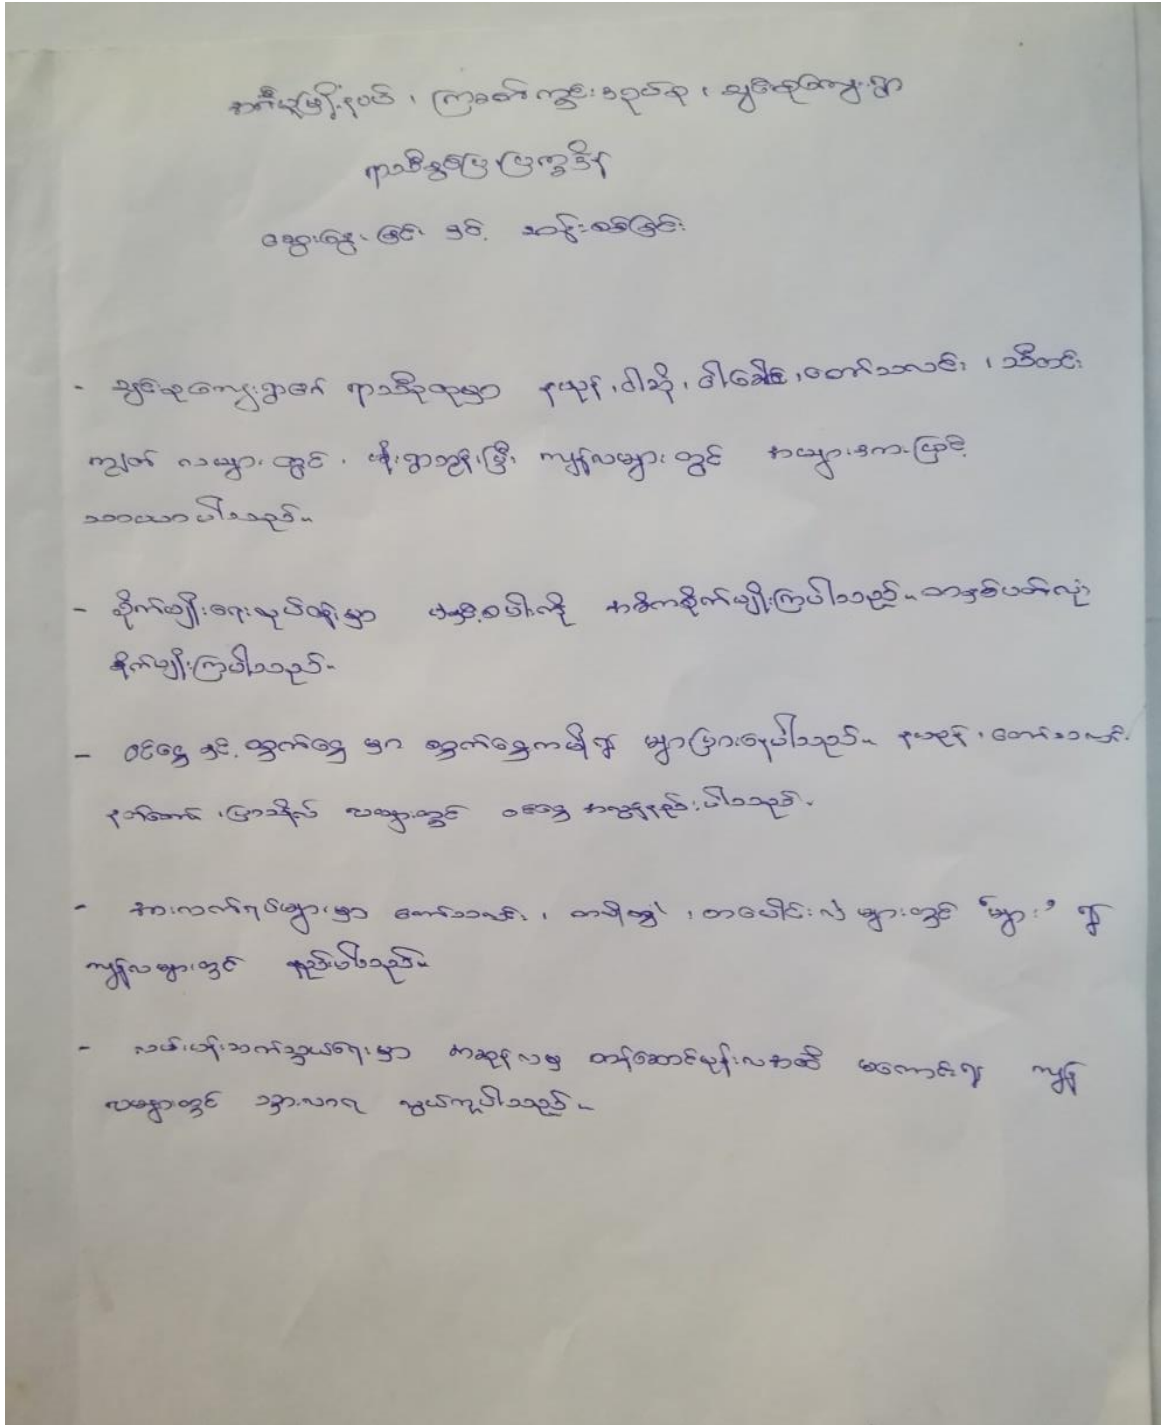 အင်္ဂပူမြို့နယ်၊ ကြခတ်ကွင်းအုပ်စု၊ ချင်းစုကျေးရွာ
ရာသီခွင်ပြ ပြက္ခဒိန်
ဆွေးနွေးခြင်း နှင့် ဆန်းစစ်ခြင်း
- ချင်းစုကျေးရွာ၏ ရာသီဥတုမှာ နယုန်၊ ဝါဆို၊ ဝါခေါင်၊ တော်သလင်း၊ သီတင်း
ကျွတ် လများ တွင် မိုးရွာသွန်းပြီး ကျန်လများ တွင် အများအားဖြင့်
သာယာပါသည်။
- စိုက်ပျိုးရေးလုပ်ငန်းမှာ မိုးစပါးကို အဓိကစိုက်ပျိုးကြပါသည်။ တာနှစ်ပတ်လုံး
စိုက်ပျိုးကြပါသည်။
- ဝင်ငွေ နှင့် ထွက်ငွေ မှာ ထွက်ငွေကပို၍ များပြားနေပါသည်။ နယုန်၊ တော်သလင်း
နတ်တော်၊ ပြာသိုလ် လများတွင် ဝင်ငွေ အလွန်နည်းပါသည်။
- အားလက်ရပ်များမှာ တော်သလင်း၊ တပို့တွဲ၊ တပေါင်းလ များတွင် "များ" ၍
ကျန်လများတွင် နည်းပါသည်။
- လမ်းပန်းဆက်သွယ်ရေးမှာ နယုန်လမှ တန်ဆောင်မုန်းလအထိ မကောင်း၍ ကျန်
လများတွင် သွားလာရ လွယ်ကူပါသည်။